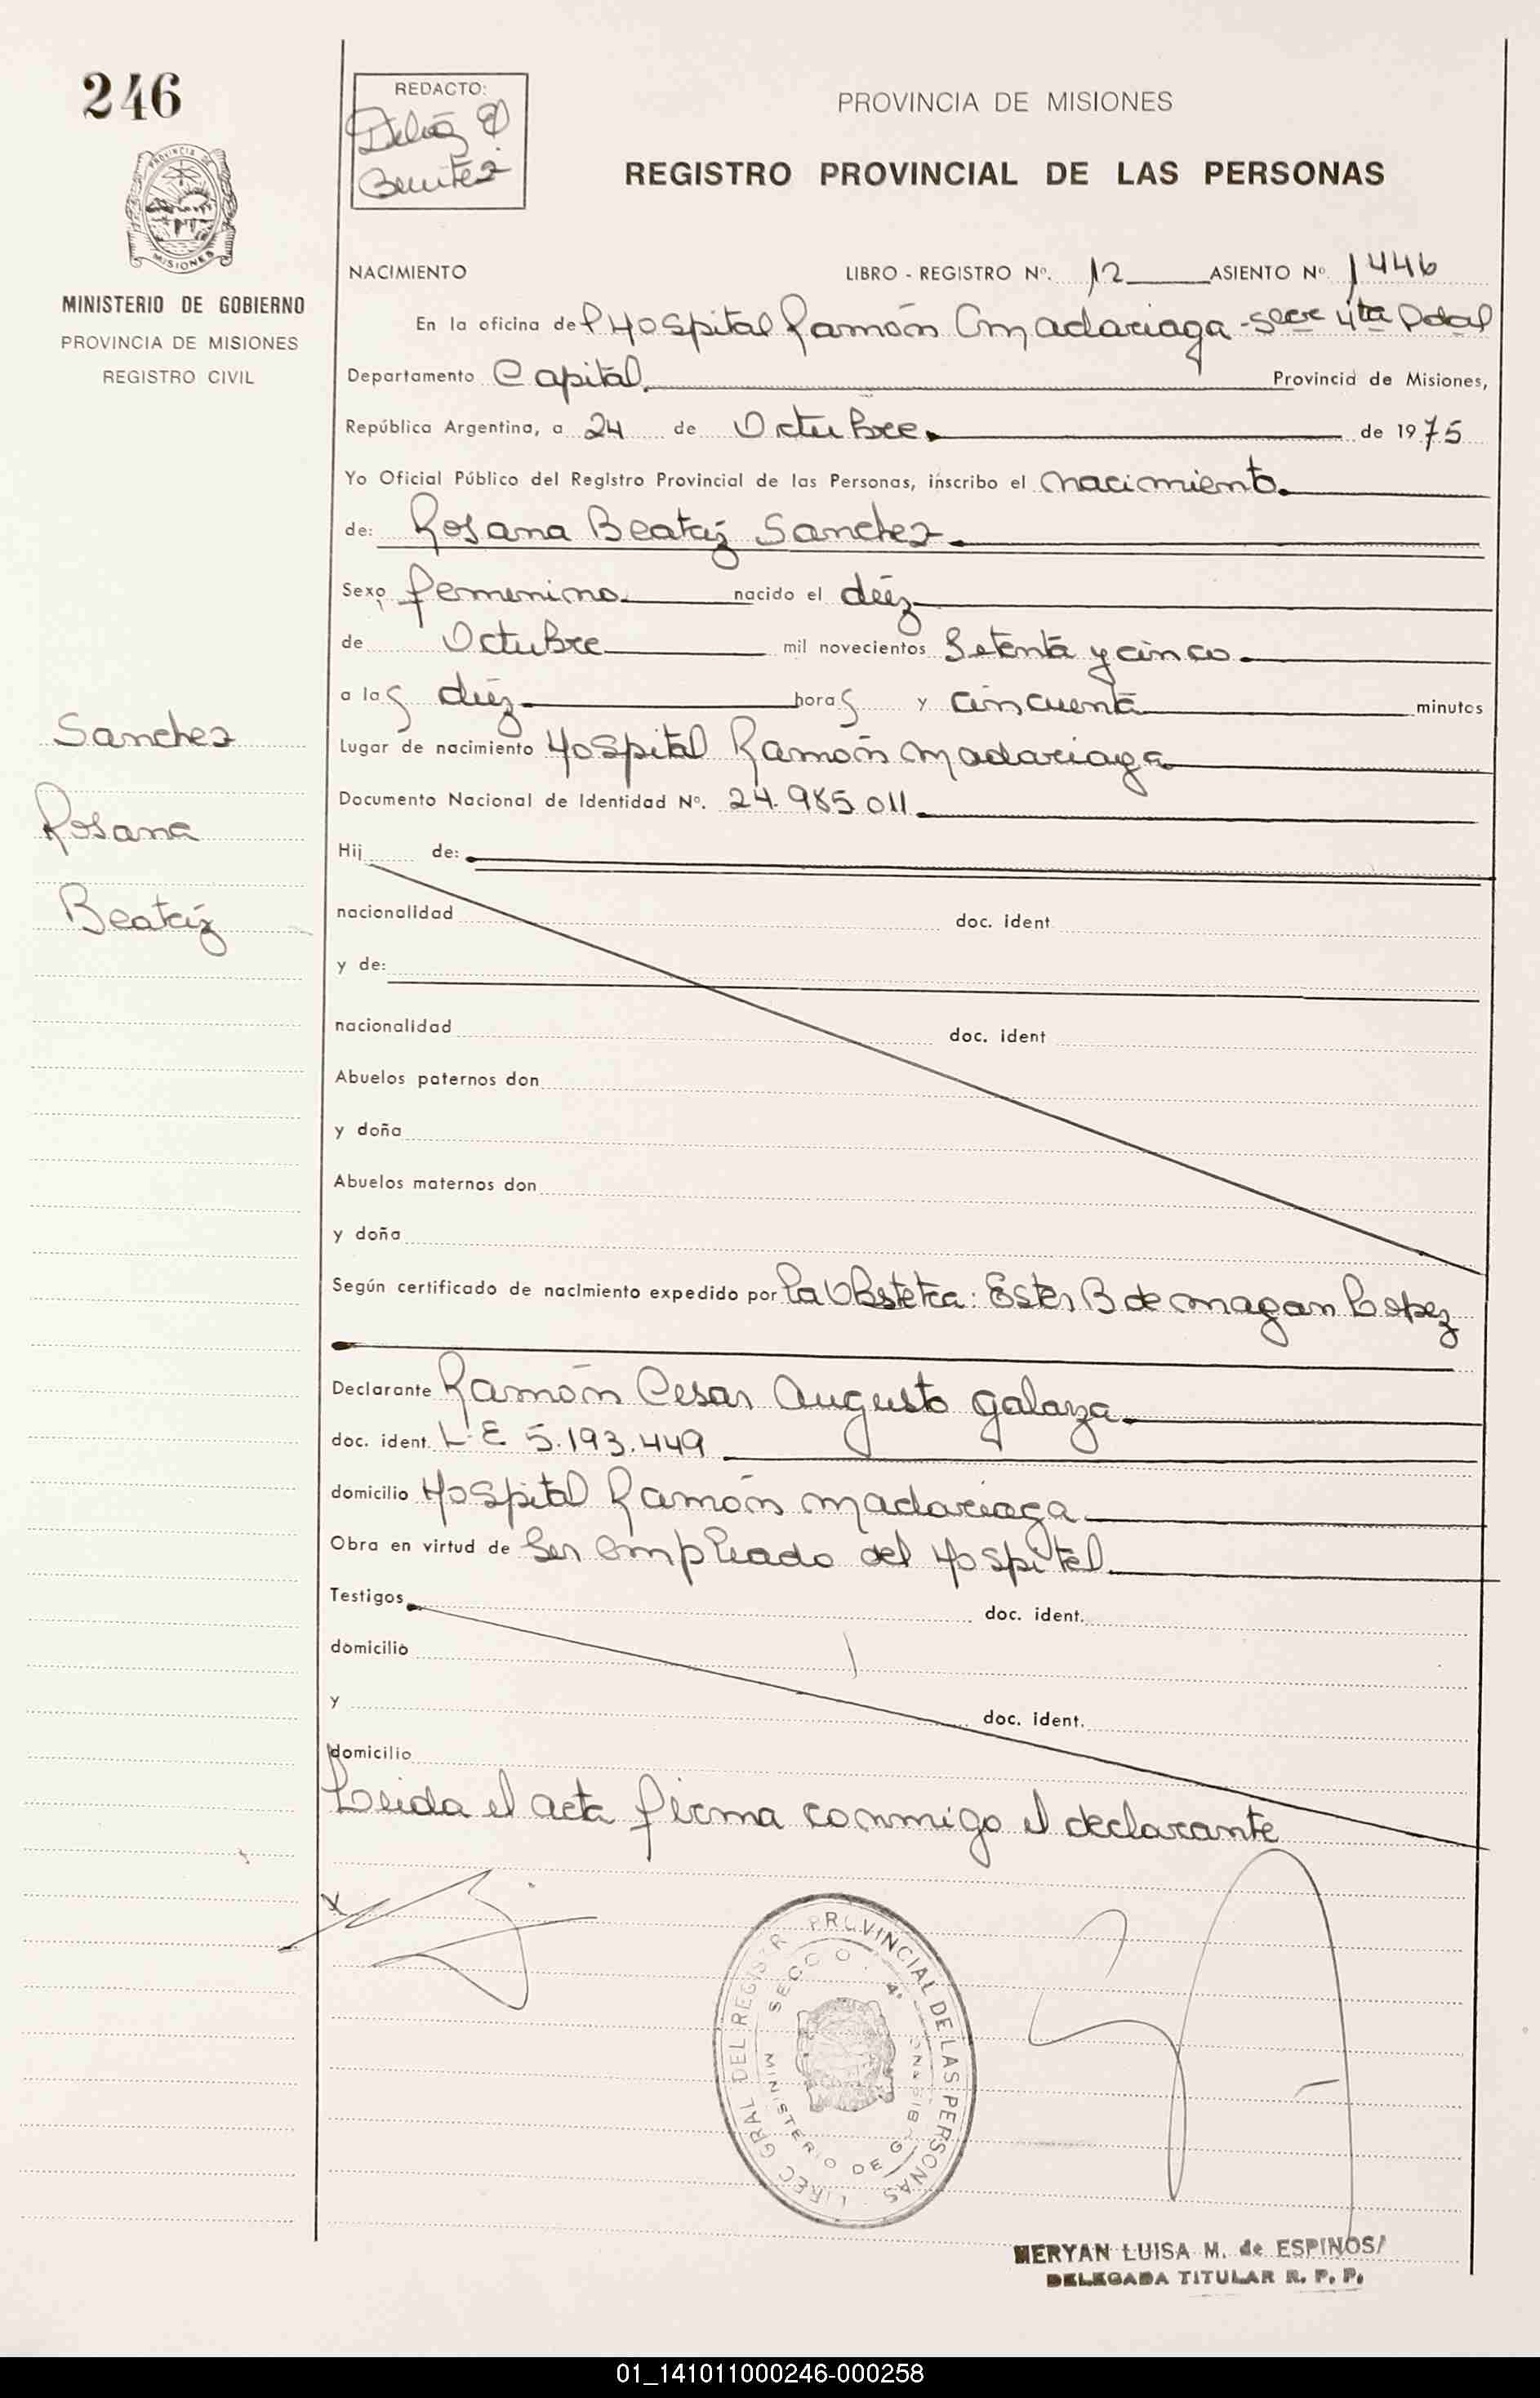 246
REDACTO:
Benitez
PROVINCIA DE MISIONES
REGISTRO PROVINCIAL DE LAS PERSONAS
PROVINCIA DE
MISIONES
MINISTERIO DE GOBIERNO
PROVINCIA DE MISIONES
REGISTRO CIVIL
NACIMIENTO LIBRO - REGISTRO Nº. 12 ASIENTO Nº 1446
En la oficina del Hospital Ramón Madariaga - Secc 4ta Pdal
Departamento Capital Provincia de Misiones,
República Argentina, a 24 de Octubre. de 1975
Yo Oficial Público del Registro Provincial de las Personas, inscribo el nacimiento.
de: Rosana Beatriz Sanchez.
Sexo femenino. nacido el diéz
de Octubre mil novecientos Setenta y cinco.
a las diéz horas y cincuenta minutos
Lugar de nacimiento Hospital Ramón Madariaga
Documento Nacional de Identidad Nº. 24.985.011
Sanchez
Rosana
Beatriz
Hij de:
nacionalidad doc. ident
y de:
nacionalidad doc. ident
Abuelos paternos don
y doña
Abuelos maternos don
y doña
Según certificado de nacimiento expedido por la Obstetra: Ester B de Magan Lopez
Declarante Ramón Cesar Augusto Galarza
doc. ident. L.E 5.193.449
domicilio Hospital Ramón Madariaga
Obra en virtud de Ser empleado del Hospital.
Testigos doc. ident.
domicilio
y doc. ident.
domicilio
Leida el acta firma conmigo el declarante
X
DIREC GRAL DEL REGISTR PROVINCIAL DE LAS PERSONAS
SECC O. 4ª
MINISTERIO DE G
MERYAN LUISA M. de ESPINOS
DELEGADA TITULAR R. P. P.
01_141011000246-000258